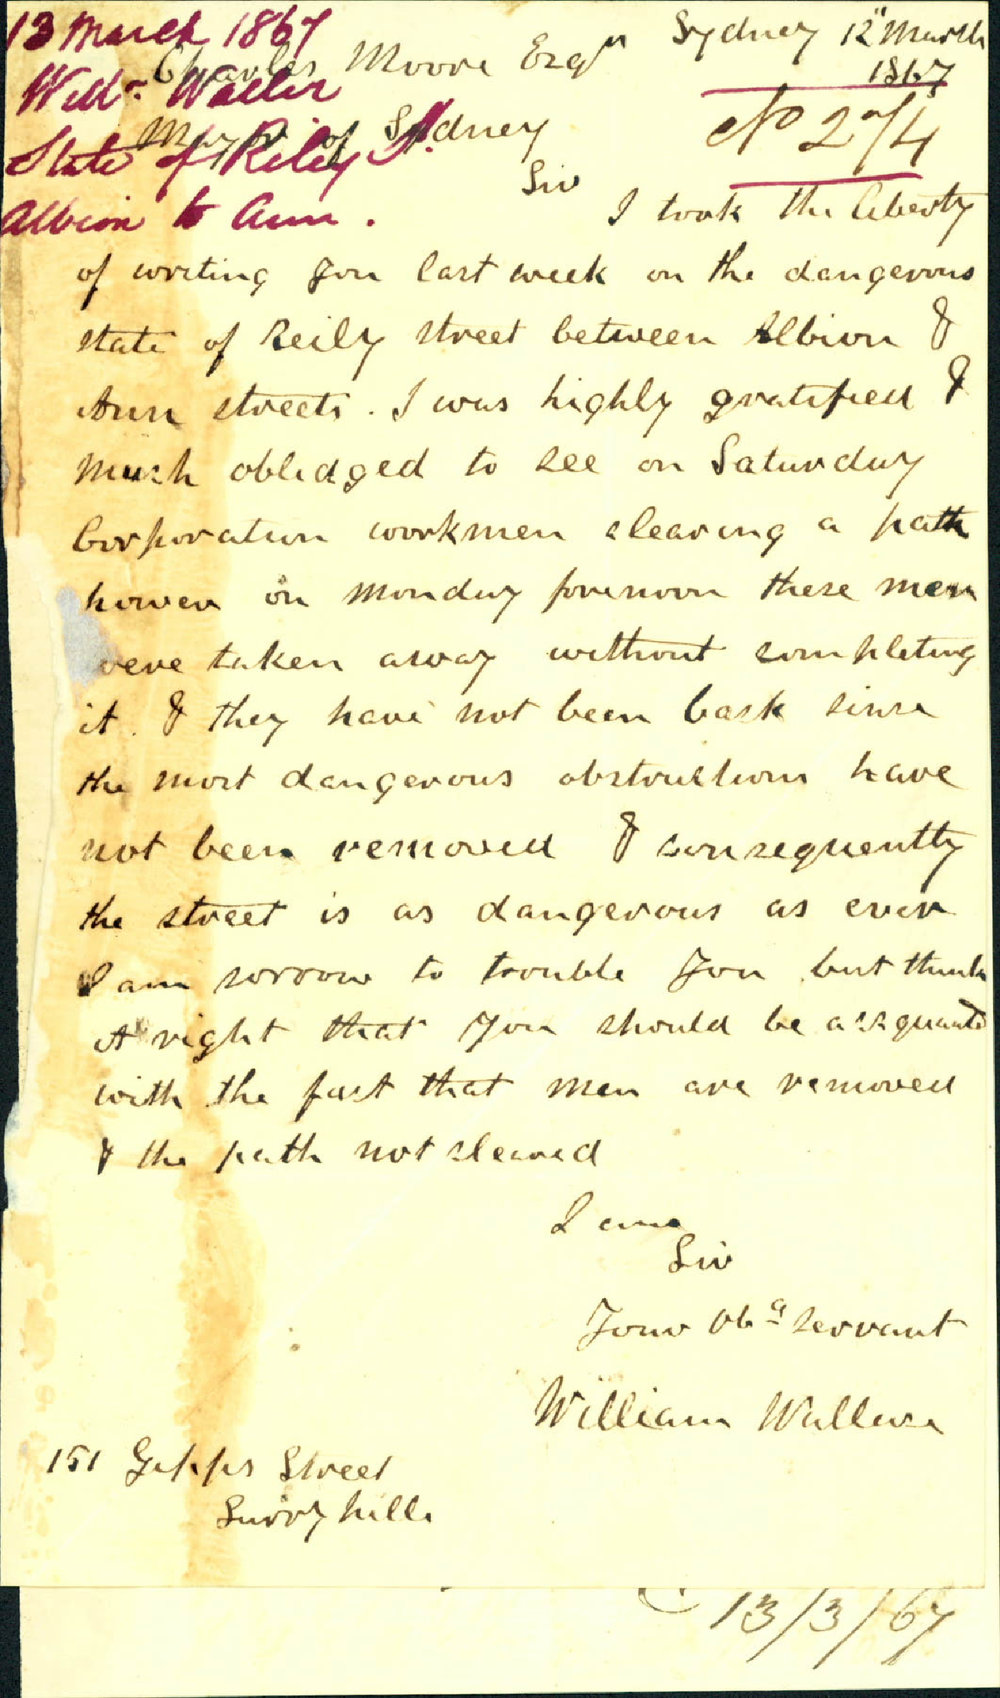 13 March 1867
Willm Waller
State of Riley St.
Albion to Ann.
Sydney 12" March
1867
No 274
Charles Moore Esqr
Mayor of Sydney
Sir
I took the liberty
of writing you last week on the dangerous
state of Reily street between Albion &
Ann streets. I was highly gratified &
much oblidged to see on Saturday
Corporation workmen clearing a path
however on Monday forenoon these men
were taken away without completing
it. & they have not been back since
the most dangerous obstructions have
not been removed & consequently
the street is as dangerous as ever
I am sorrow to trouble you but think
it right that you should be acquanted
with the fact that men are removed
& the path not cleared
I am
Sir
Your Obt servant
William
151 Gipps Street
Surry hills
13/3/67